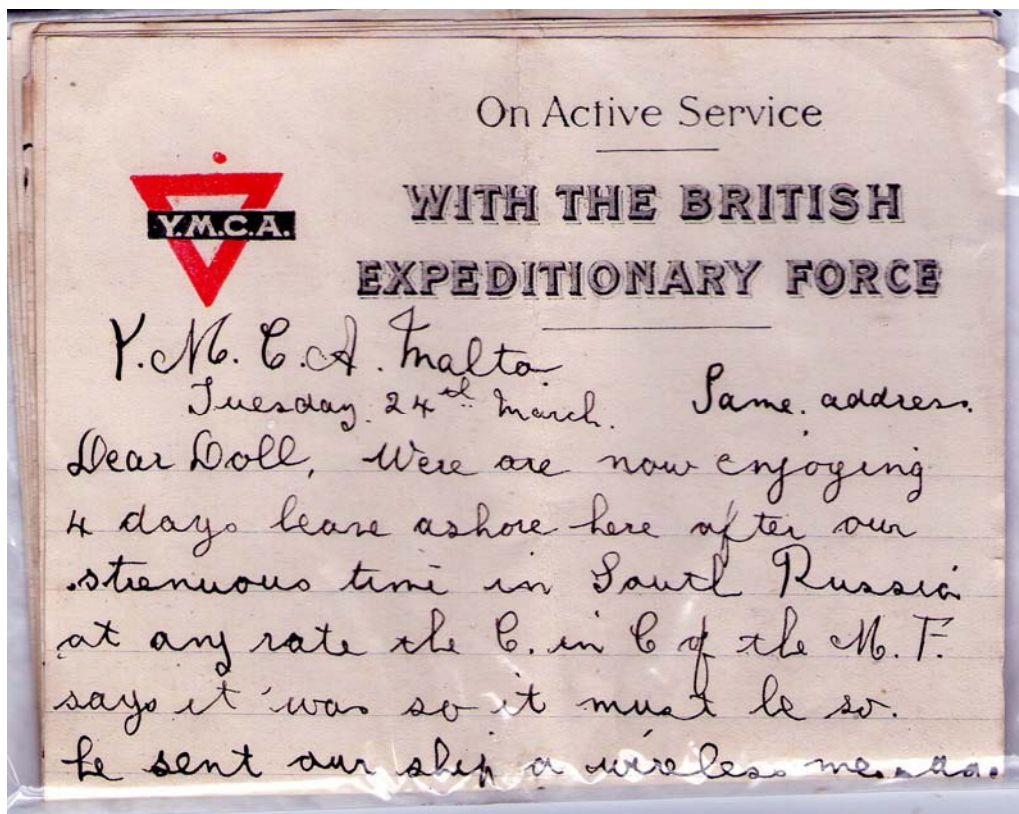 On Active Service
WITH THE BRITISH
EXPEDITIONARY FORCE
Y.M.C.A.
Y.M.C.A. Malta
Tuesday 24th March. Same address.
Dear Doll, Were are now enjoying
4 days leave ashore here after our
strenuous time in South Russia
at any rate the C. in C of the M.F.
says it was so it must be so.
he sent our ship a wireless